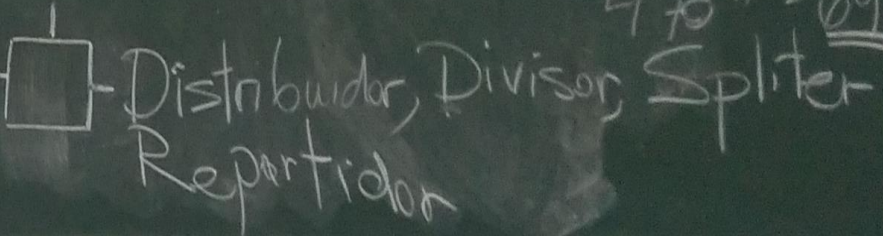 Distribuidor, Divisor, Spliter
Repartidor